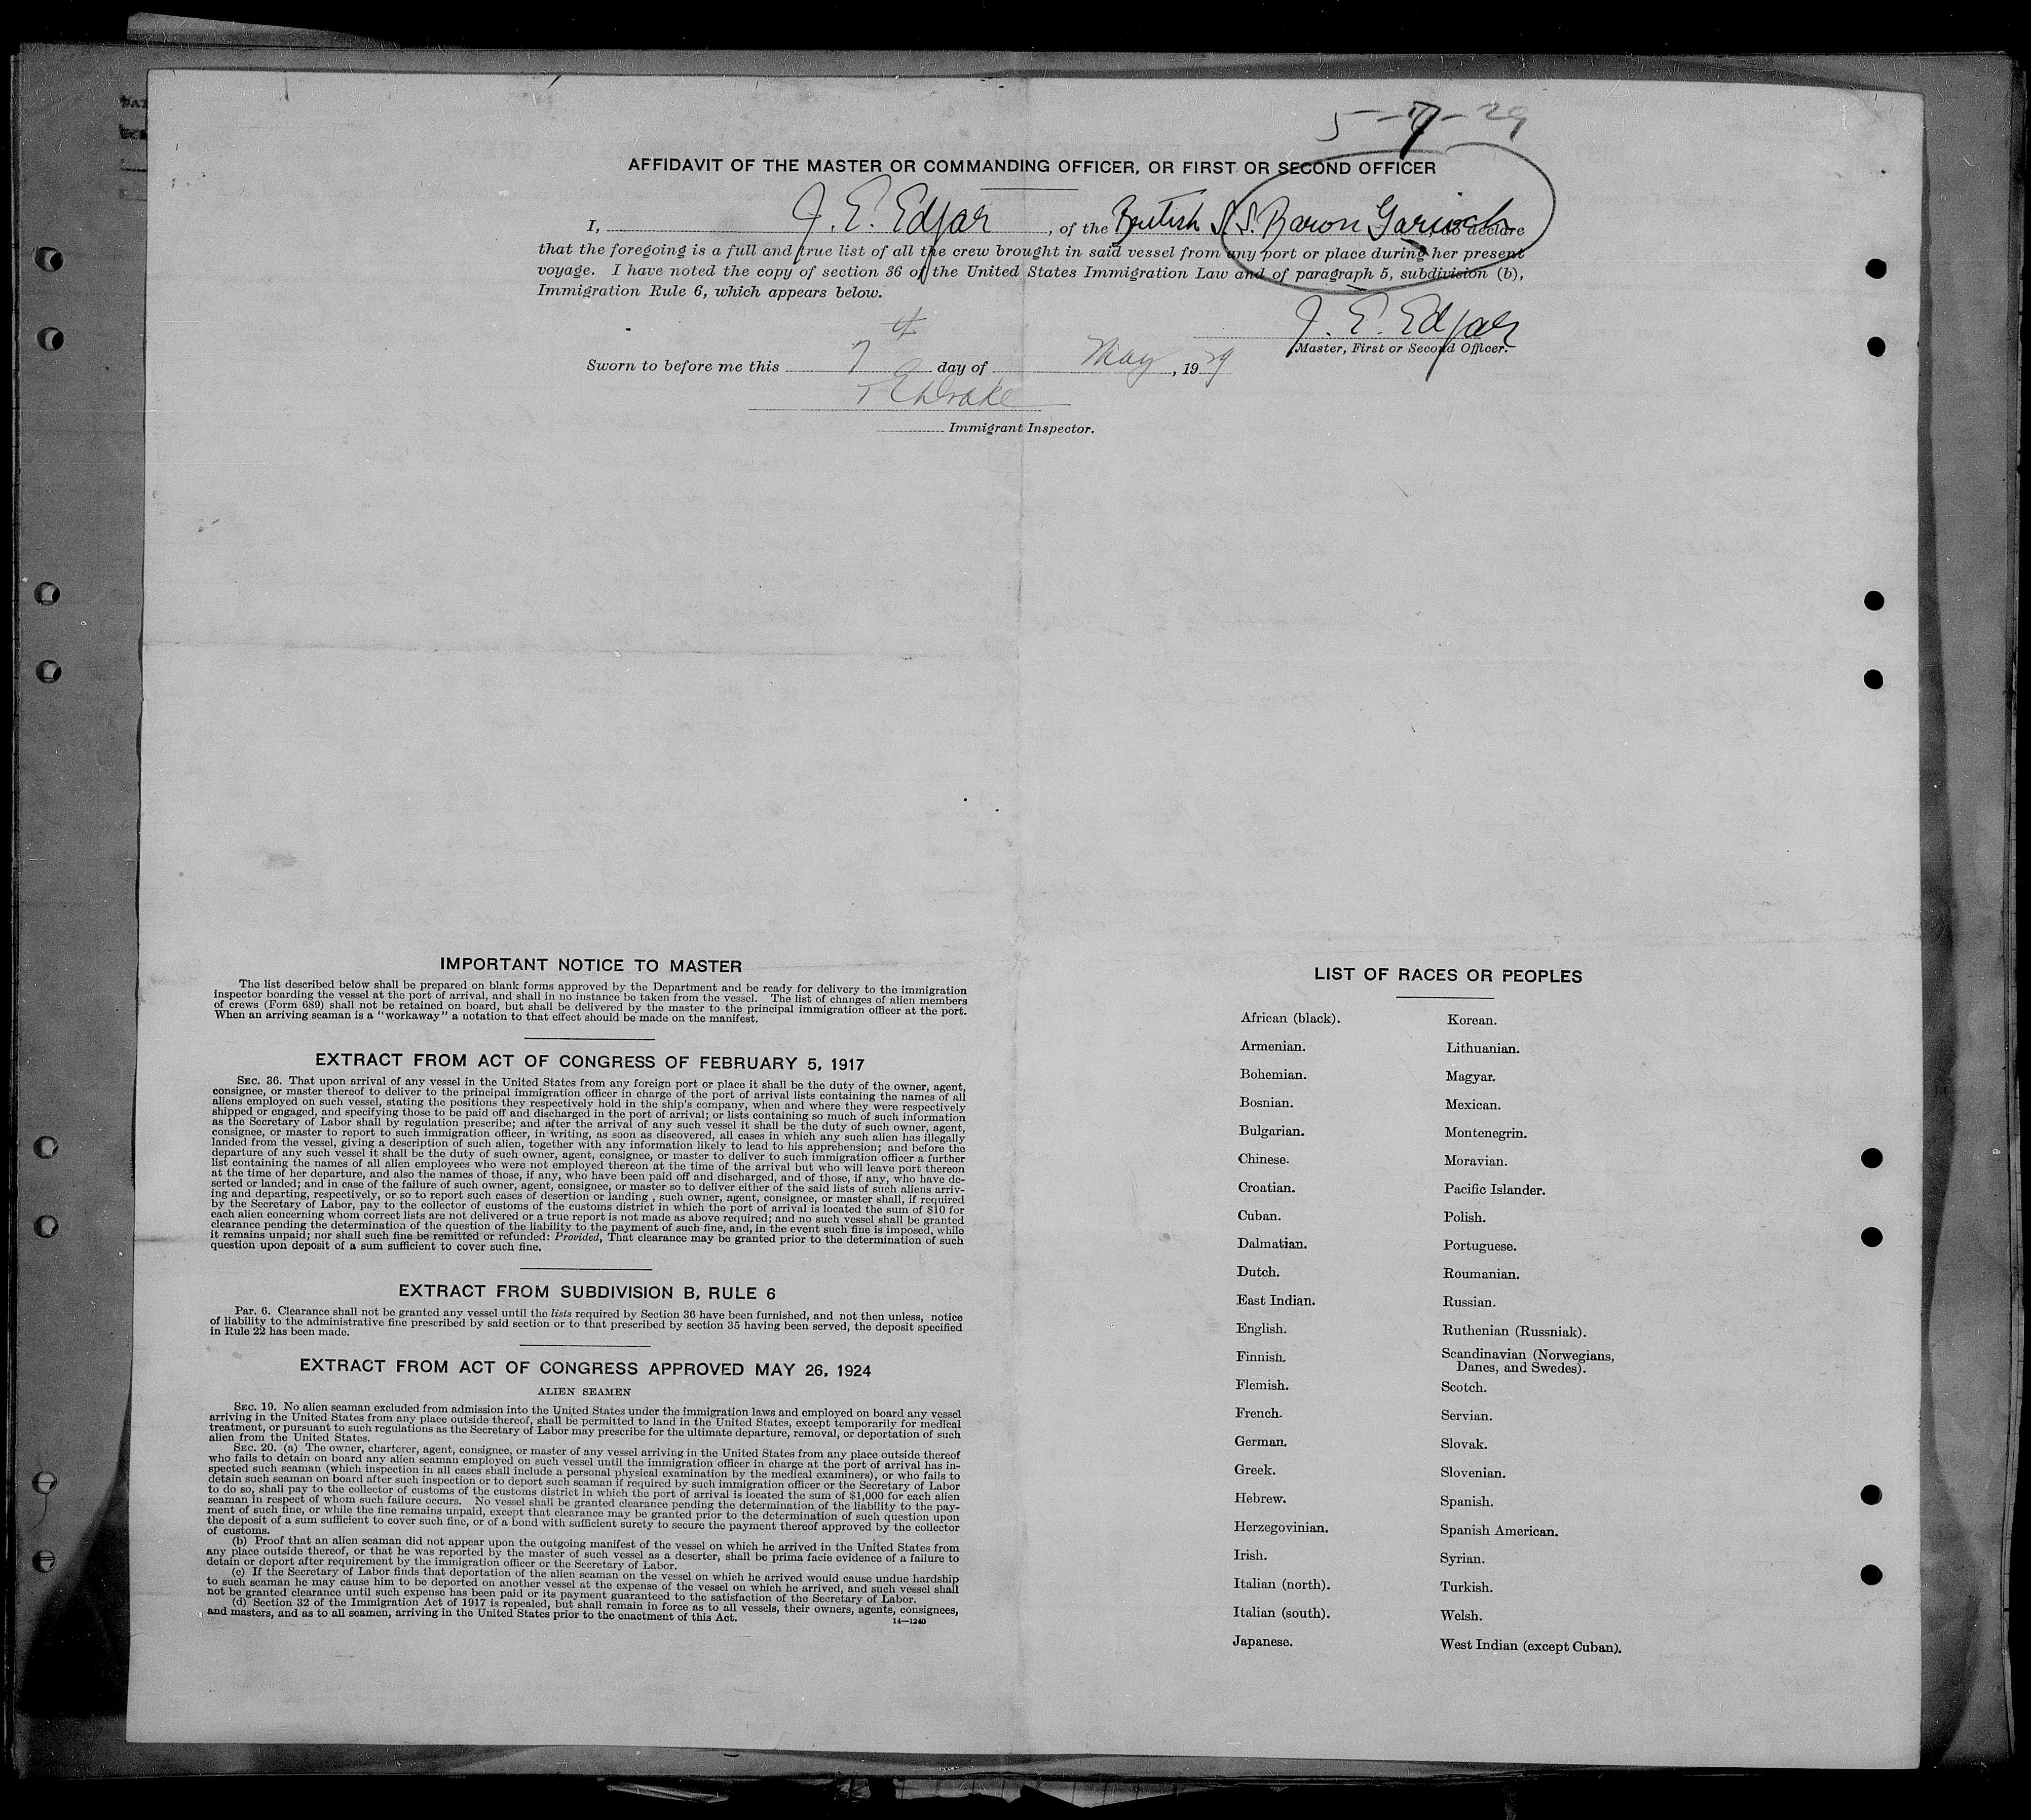 5-7-29
AFFIDAVIT OF THE MASTER OR COMMANDING OFFICER, OR FIRST OR SECOND OFFICER
I, J. E. Edgar, of the British S.S. Baron Garioch, do declare
that the foregoing is a full and true list of all the crew brought in said vessel from any port or place during her present
voyage. I have noted the copy of section 36 of the United States Immigration Law and of paragraph 5, subdivision (b),
Immigration Rule 6, which appears below.
J. E. Edgar
Master, First or Second Officer.
Sworn to before me this 7 day of May, 1929
Drake
Immigrant Inspector.
IMPORTANT NOTICE TO MASTER
The list described below shall be prepared on blank forms approved by the Department and be ready for delivery to the immigration
inspector boarding the vessel at the port of arrival, and shall in no instance be taken from the vessel. The list of changes of alien members
of crews (Form 689) shall not be retained on board, but shall be delivered by the master to the principal immigration officer at the port.
When an arriving seaman is a "workaway" a notation to that effect should be made on the manifest.
EXTRACT FROM ACT OF CONGRESS OF FEBRUARY 5, 1917
SEC. 36. That upon arrival of any vessel in the United States from any foreign port or place it shall be the duty of the owner, agent,
consignee, or master thereof to deliver to the principal immigration officer in charge of the port of arrival lists containing the names of all
aliens employed on such vessel, stating the positions they respectively hold in the ship's company, when and where they were respectively
shipped or engaged, and specifying those to be paid off and discharged in the port of arrival; or lists containing so much of such information
as the Secretary of Labor shall by regulation prescribe; and after the arrival of any such vessel it shall be the duty of such owner, agent,
consignee, or master to report to such immigration officer, in writing, as soon as discovered, all cases in which any such alien has illegally
landed from the vessel, giving a description of such alien, together with any information likely to lead to his apprehension; and before the
departure of any such vessel it shall be the duty of such owner, agent, consignee, or master to deliver to such immigration officer a further
list containing the names of all alien employees who were not employed thereon at the time of the arrival but who will leave port thereon
at the time of her departure, and also the names of those, if any, who have been paid off and discharged, and of those, if any, who have de-
serted or landed; and in case of the failure of such owner, agent, consignee, or master so to deliver either of the said lists of such aliens arriv-
ing and departing, respectively, or so to report such cases of desertion or landing , such owner, agent, consignee, or master shall, if required
by the Secretary of Labor, pay to the collector of customs of the customs district in which the port of arrival is located the sum of $10 for
each alien concerning whom correct lists are not delivered or a true report is not made as above required; and no such vessel shall be granted
clearance pending the determination of the question of the liability to the payment of such fine, and, in the event such fine is imposed, while
it remains unpaid; nor shall such fine be remitted or refunded: Provided, That clearance may be granted prior to the determination of such
question upon deposit of a sum sufficient to cover such fine.
EXTRACT FROM SUBDIVISION B, RULE 6
Par. 6. Clearance shall not be granted any vessel until the lists required by Section 36 have been furnished, and not then unless, notice
of liability to the administrative fine prescribed by said section or to that prescribed by section 35 having been served, the deposit specified
in Rule 22 has been made.
EXTRACT FROM ACT OF CONGRESS APPROVED MAY 26, 1924
ALIEN SEAMEN
SEC. 19. No alien seaman excluded from admission into the United States under the immigration laws and employed on board any vessel
arriving in the United States from any place outside thereof, shall be permitted to land in the United States, except temporarily for medical
treatment, or pursuant to such regulations as the Secretary of Labor may prescribe for the ultimate departure, removal, or deportation of such
alien from the United States.
SEC. 20. (a) The owner, charterer, agent, consignee, or master of any vessel arriving in the United States from any place outside thereof
who fails to detain on board any alien seaman employed on such vessel until the immigration officer in charge at the port of arrival has in-
spected such seaman (which inspection in all cases shall include a personal physical examination by the medical examiners), or who fails to
detain such seaman on board after such inspection or to deport such seaman if required by such immigration officer or the Secretary of Labor
to do so, shall pay to the collector of customs of the customs district in which the port of arrival is located the sum of $1,000 for each alien
seaman in respect of whom such failure occurs. No vessel shall be granted clearance pending the determination of the liability to the pay-
ment of such fine, or while the fine remains unpaid, except that clearance may be granted prior to the determination of such question upon
the deposit of a sum sufficient to cover such fine, or of a bond with sufficient surety to secure the payment thereof approved by the collector
of customs.
(b) Proof that an alien seaman did not appear upon the outgoing manifest of the vessel on which he arrived in the United States from
any place outside thereof, or that he was reported by the master of such vessel as a deserter, shall be prima facie evidence of a failure to
detain or deport after requirement by the immigration officer or the Secretary of Labor.
(c) If the Secretary of Labor finds that deportation of the alien seaman on the vessel on which he arrived would cause undue hardship
to such seaman he may cause him to be deported on another vessel at the expense of the vessel on which he arrived, and such vessel shall
not be granted clearance until such expense has been paid or its payment guaranteed to the satisfaction of the Secretary of Labor.
(d) Section 32 of the Immigration Act of 1917 is repealed, but shall remain in force as to all vessels, their owners, agents, consignees,
and masters, and as to all seamen, arriving in the United States prior to the enactment of this Act.
14—1240
LIST OF RACES OR PEOPLES
African (black).
Armenian.
Bohemian.
Bosnian.
Bulgarian.
Chinese.
Croatian.
Cuban.
Dalmatian.
Dutch.
East Indian.
English.
Finnish.
Flemish.
French.
German.
Greek.
Hebrew.
Herzegovinian.
Irish.
Italian (north).
Italian (south).
Japanese.
Korean.
Lithuanian.
Magyar.
Mexican.
Montenegrin.
Moravian.
Pacific Islander.
Polish.
Portuguese.
Roumanian.
Russian.
Ruthenian (Russniak).
Scandinavian (Norwegians,
Danes, and Swedes).
Scotch.
Servian.
Slovak.
Slovenian.
Spanish.
Spanish American.
Syrian.
Turkish.
Welsh.
West Indian (except Cuban).